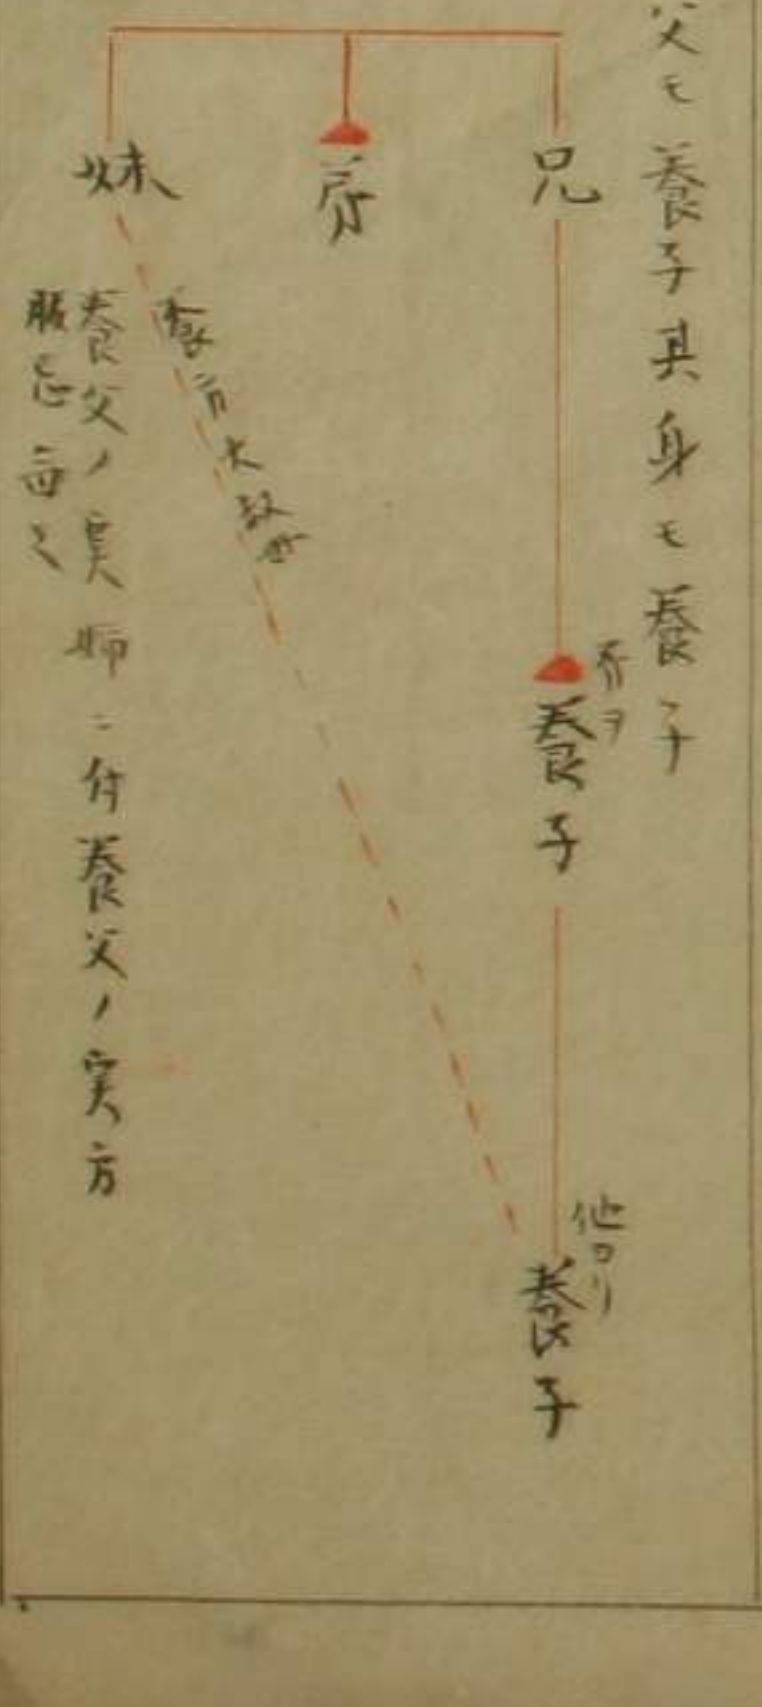 父モ養子其身モ養子
兄
弟
妹
弟ヲ
養子
他ヨリ
養子
養方大叔母
養父ノ実姉ニ付養父ノ実方
服忌